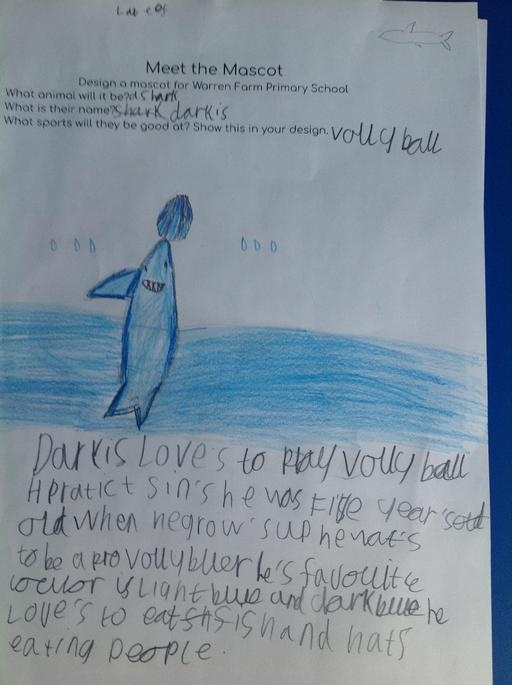 Meet the Mascot
Design a mascot for Warren Farm Primary School
What animal will it be? a Shark
What is their name? Shark darkis
What sports will they be good at? Show this in your design. Volly ball
Darkis Love's to Play Volly ball
H pratict sin's he was Five year's
old when negrow's up he wat's
to be a pro vollybller he's favouite
coulor is Light blue and dark blue he
Love's to eat fish and hats
eating people.